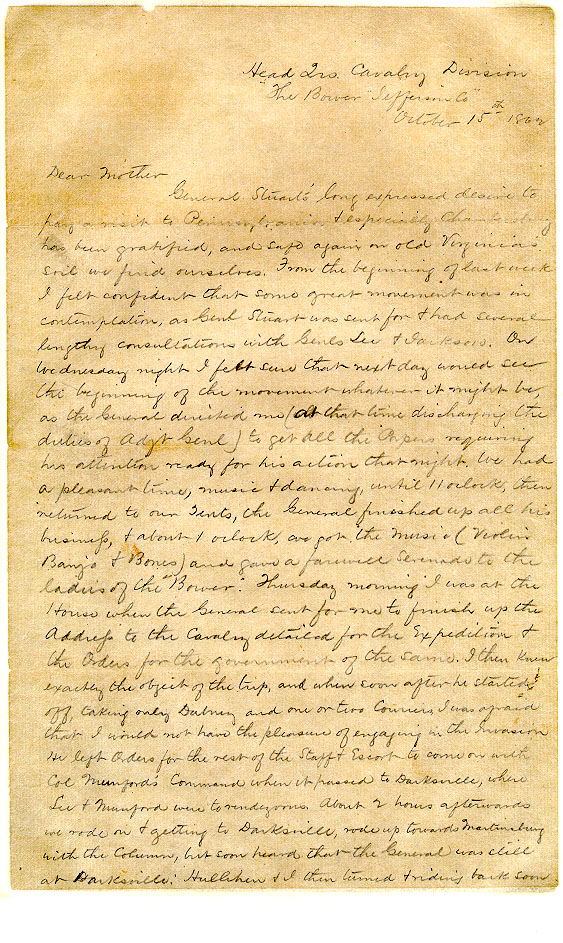 Head Qrs. Cavalry Division
"The Bower" Jefferson Co
October 15th 1862
Dear Mother
General Stuart's long expressed desire to
pay a visit to Pennsylvania & especially Chambersburg
has been gratified, and safe again on old Virginia's
soil we find ourselves. From the beginning of last week
I felt confident that some great movement was in
contemplation, as Genl Stuart was sent for & had several
lengthy consultations with Genls Lee & Jackson. On
Wednesday night I felt sure that next day would see
the beginning of the movement whatever it might be,
as the General directed me (at that time discharging the
duties of Adjt Genl) to get all the Papers requiring
his attention ready for his action that night. We had
a pleasant time, music & dancing, until 11 oclock, then
returned to our Tents, the General finished up all his
business, & about 1 oclock, we got the music (Violin
Banjo & Bones) and gave a farewell Serenade to the
ladies of the "Bower". Thursday morning I was at the
House when the General sent for me to finish up the
Address to the Cavalry detailed for the Expedition &
the Orders for the government of the same. I then knew
exactly the object of the trip, and when soon after he started
off, taking only Dabney and one or two Couriers, I was afraid
that I would not have the pleasure of engaging in the Invasion
He left Orders for the rest of the Staff & Escort to come on with
Col Munford's Command when it passed to Darksville, where
Lee & Munford were to rendezvous. About 2 hours afterwards
we rode on & getting to Darksville, rode up towards Martinsburg
with the Column, but soon heard that the General was still
at Darksville. Hullihen & I then turned & riding back soon